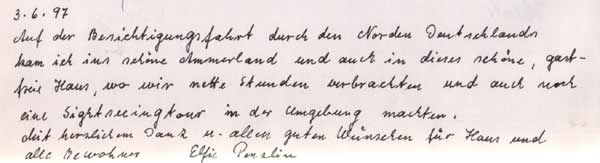 3.6.97
Auf der Besichtigungsfahrt durch den Norden Deutschlands
kam ich ins schöne Ammerland und auch in dieses schöne, gast-
freie Haus, wo wir nette Stunden verbrachten und auch noch
eine Sightseeingtour in der Umgebung machten.
Mit herzlichem Dank u. allen guten Wünschen für Haus und
alle Bewohner Elfie Penzlin